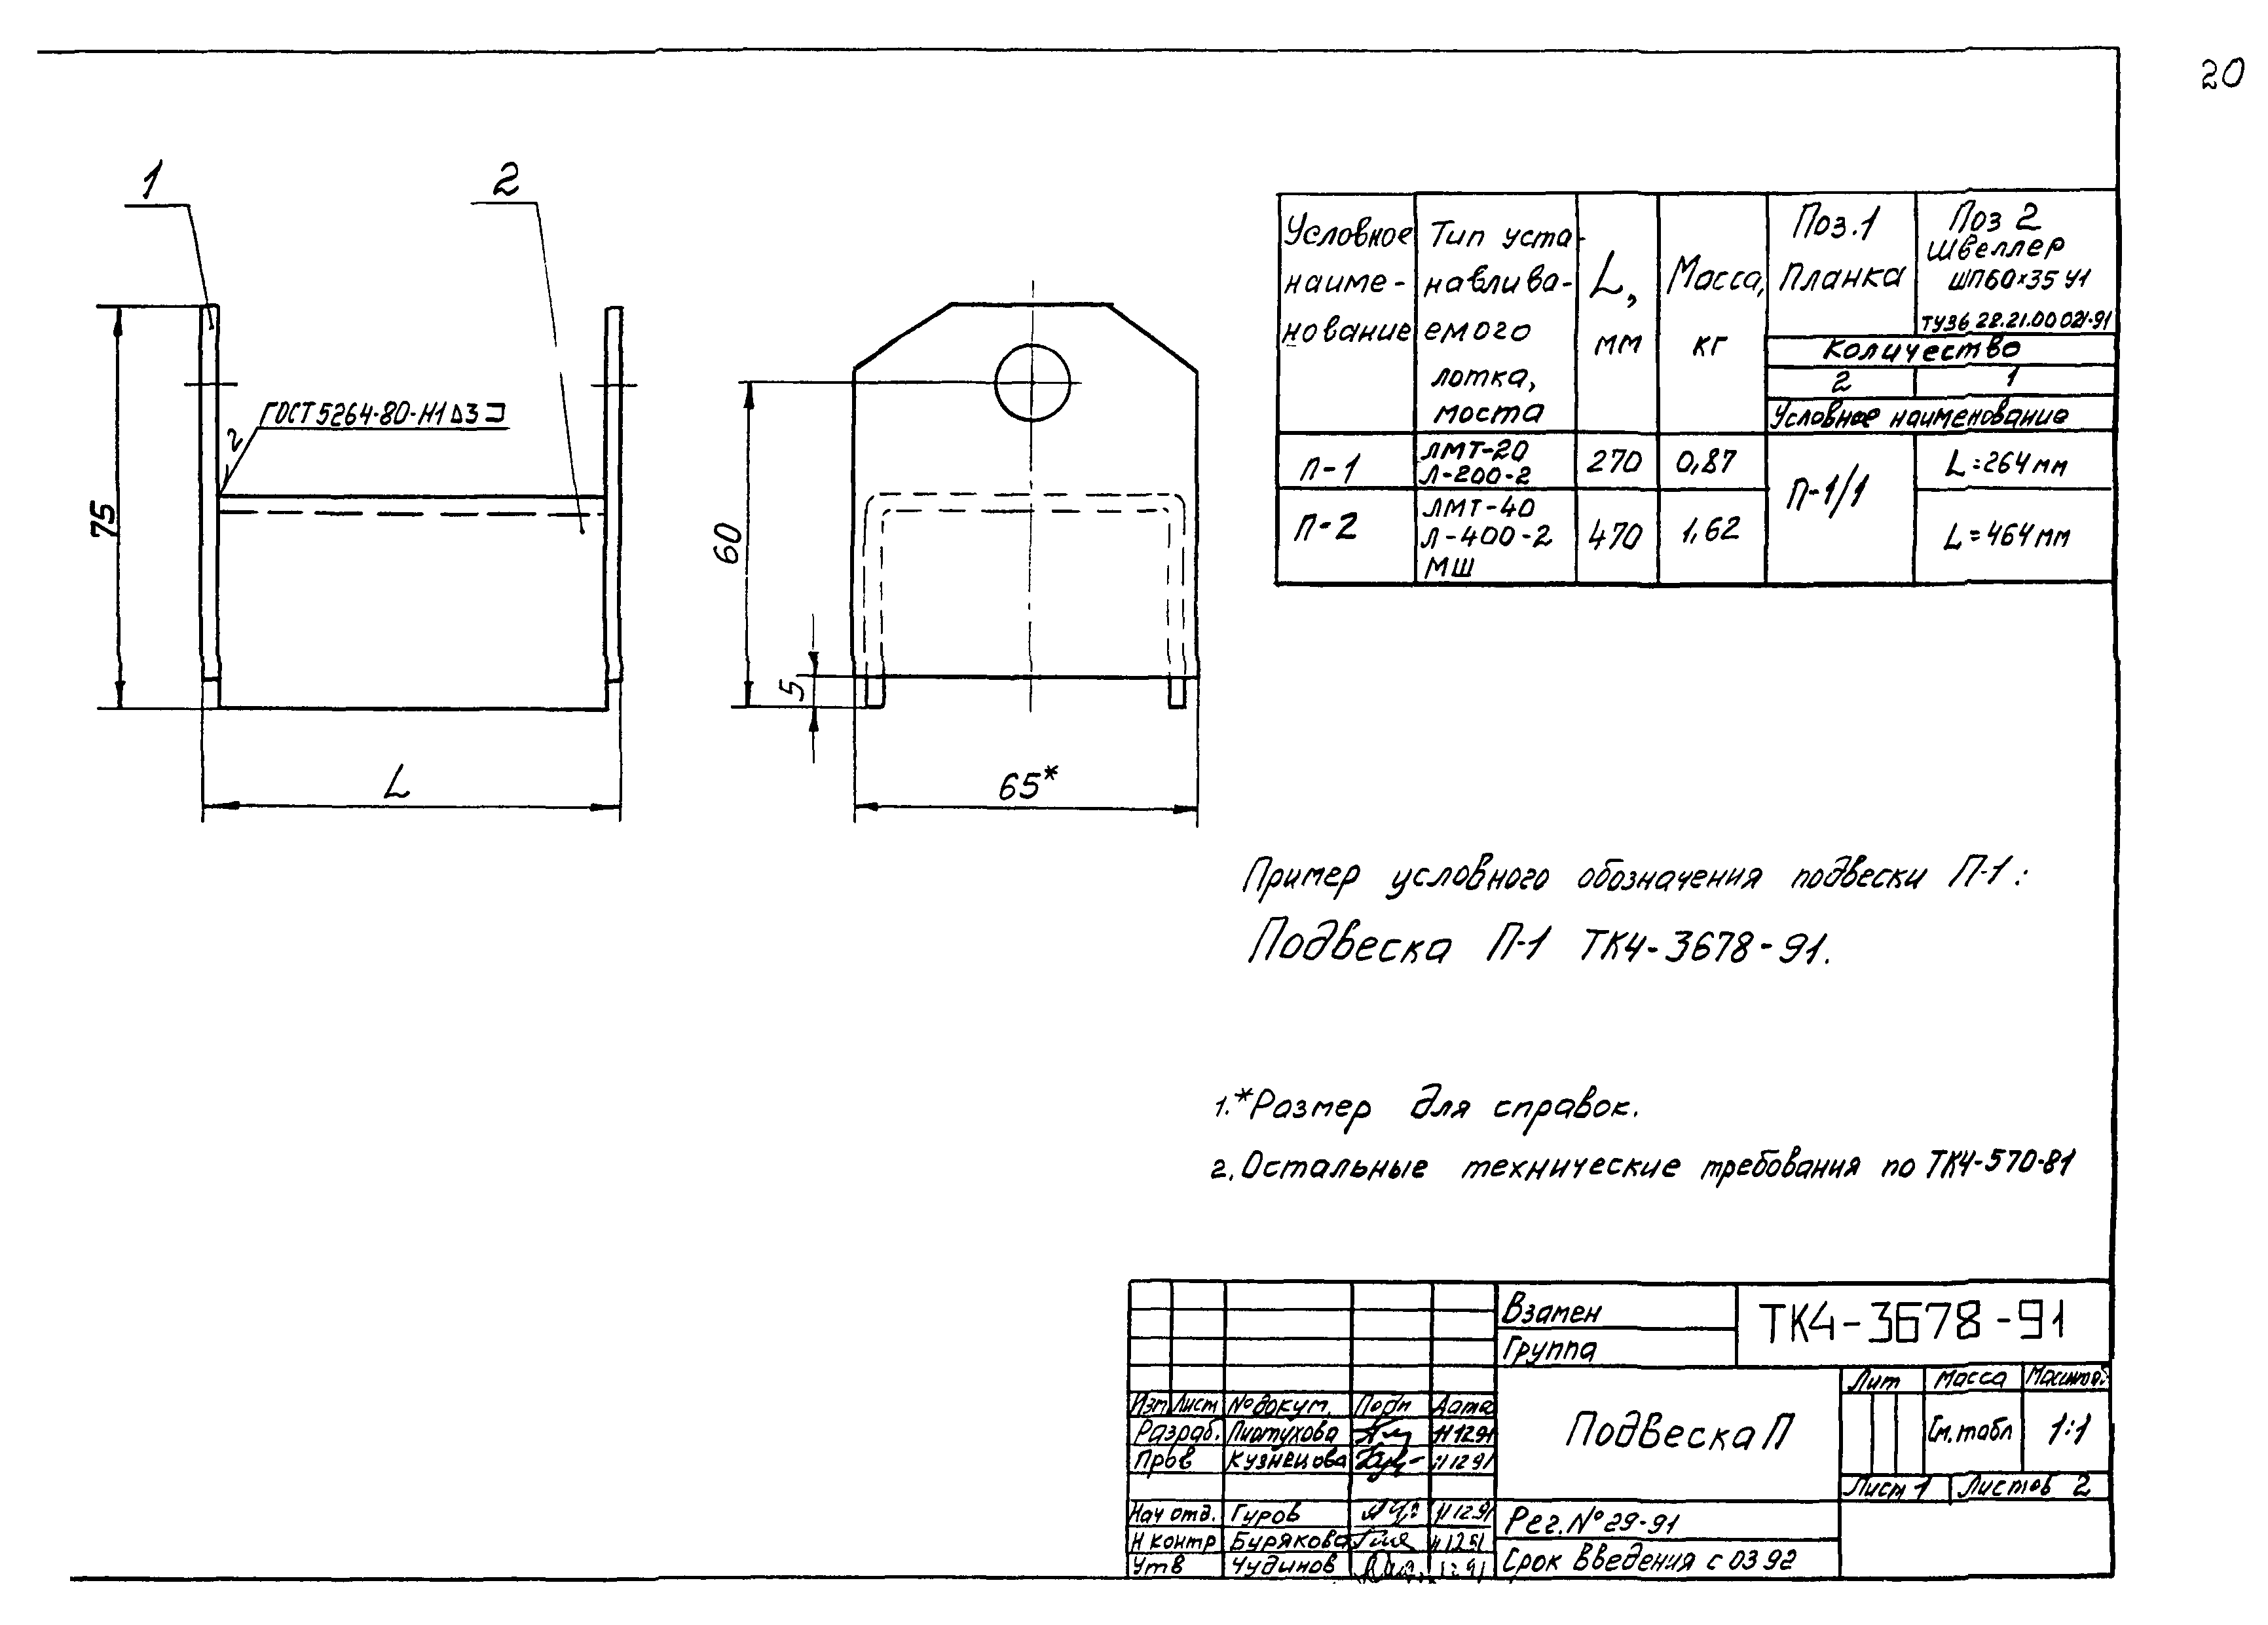 20
1
2
ГОСТ 5264-80-Н1 Δ3
75
L
60
5
65*
Условное наиме-нование
Тип уста-навлива-емого лотка, моста
L, мм
Масса, кг
Поз.1 Планка
Поз 2 Швеллер ШП60×35 У1 ТУ36 22.21.00 021-91
Количество
2 1
Условное наименование
П-1 ЛМТ-20 Л-200-2 270 0,87 П-1/1 L=264мм
П-2 ЛМТ-40 Л-400-2 МШ 470 1,62 L=464мм
Пример условного обозначения подвески П-1:
Подвеска П-1 ТК4-3678-91.
1.*Размер для справок.
2. Остальные технические требования по ТК4-570-81
Взамен
Группа
ТК4-3678-91
Изм Лист № докум. Подп Дата
Разраб. 11 12 91
Пров Кузнецова 11 12 91
Нач отд. Гуров 11 12 91
Н контр Бурякова 11 12 91
Утв Чудинов
Подвеска П
Лит Масса Масштаб
См. табл 1:1
Лист 1 Листов 2
Рег. № 29-91
Срок введения с 03 92